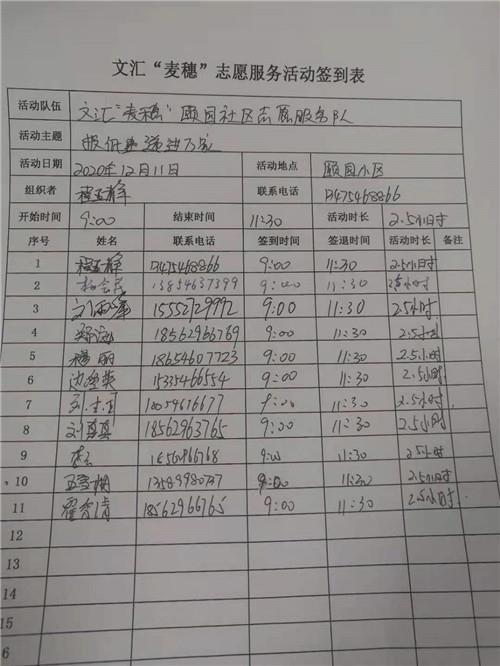 文汇“麦穗”志愿服务活动签到表
活动队伍 文汇“麦穗”颐园社区志愿服务队
活动主题
活动日期 2020年12月11日 活动地点 颐园小区
组织者 联系电话 13475468866
开始时间 9:00 结束时间 11:30 活动时长 2.5小时
序号 姓名 联系电话 签到时间 签退时间 活动时长 备注
1 13475468866 9:00 11:30 2.5小时
2 13854637399 9:00 11:30 2.5小时
3 15552729992 9:00 11:30 2.5小时
4 18562966769 9:00 11:30 2.5小时
5 穆丽 18654607723 9:00 11:30 2.5小时
6 15335466554 9:00 11:30 2.5小时
7 9:00 11:30 2.5小时
8 刘真真 18562963765 9:00 11:30 2.5小时
9 9:00 11:30 2.5小时
10 13589980737 9:00 11:30 2.5小时
11 翟秀清 18562966765 9:00 11:30 2.5小时
12
13
14
15
6